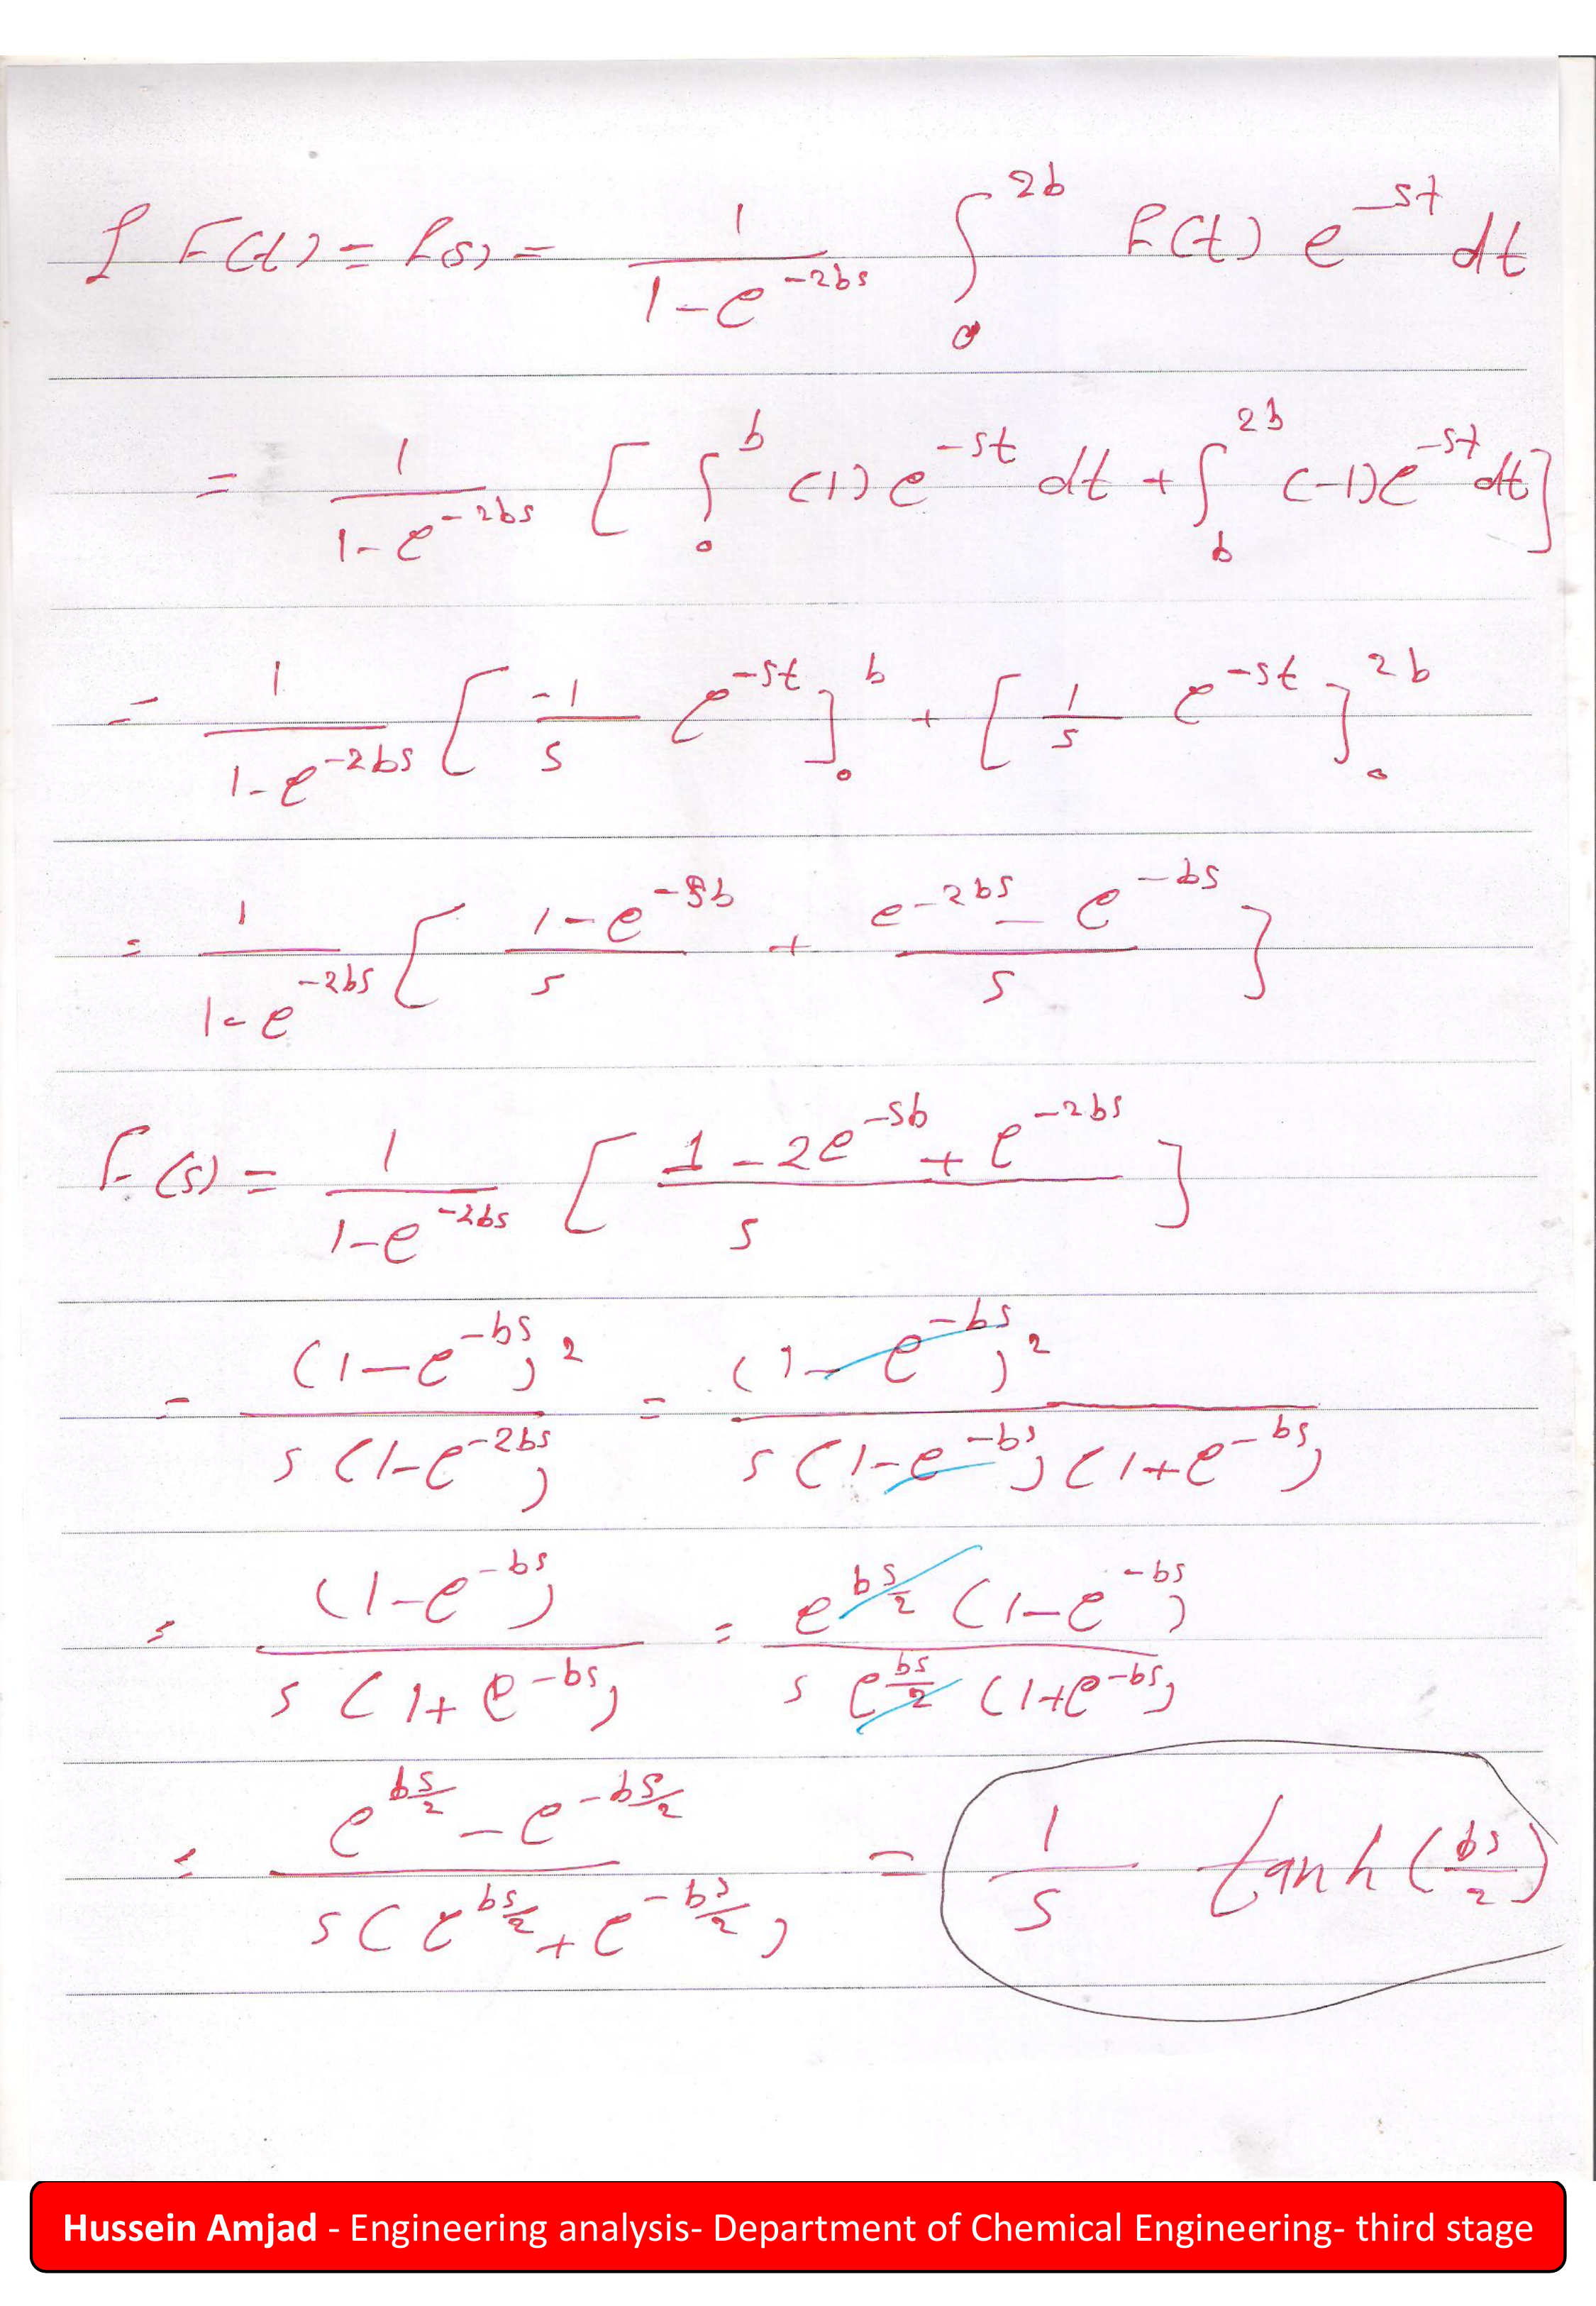 ℒ F(t) = f(s) = 1/(1-e^{-2bs}) ∫_0^{2b} F(t) e^{-st} dt
= 1/(1-e^{-2bs}) [ ∫_0^b (1) e^{-st} dt + ∫_b^{2b} (-1) e^{-st} dt ]
= 1/(1-e^{-2bs}) [ -1/s e^{-st} ]_0^b + [ 1/s e^{-st} ]_0^{2b}
= 1/(1-e^{-2bs}) [ (1-e^{-sb})/s + (e^{-2bs} - e^{-bs})/s ]
F(s) = 1/(1-e^{-2bs}) [ (1-2e^{-sb} + e^{-2bs})/s ]
= (1-e^{-bs})^2 / s(1-e^{-2bs}) = (1-e^{-bs})^2 / s(1-e^{-bs})(1+e^{-bs})
= (1-e^{-bs}) / s(1+e^{-bs}) = e^{bs/2} (1-e^{-bs}) / s e^{bs/2} (1+e^{-bs})
= (e^{bs/2} - e^{-bs/2}) / s(e^{bs/2} + e^{-bs/2}) = 1/s tanh(bs/2)
Hussein Amjad - Engineering analysis- Department of Chemical Engineering- third stage